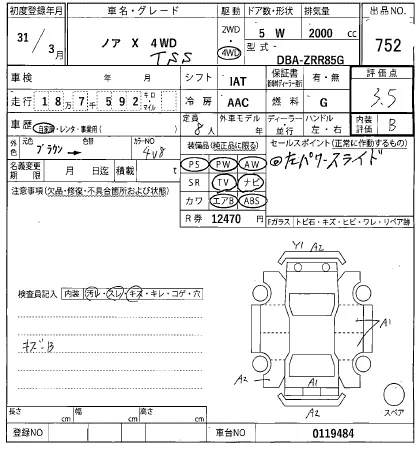 初度登録年月 車名・グレード 駆動 ドア数・形状 排気量 出品NO.
31年/3月 ノア X 4WD TSS 2WD・4WD 5 W 2000 cc 752
型式 DBA-ZRR85G
車検 年 月 シフト IAT 保証書 有・無 評価点
走行 18万7千592 キロ・マイル 冷房 AAC 燃料 G 3.5
車歴 自家用・レンタ・事業用( ) 定員 8人 外車モデル 年 ディーラー・並行 ハンドル 左・右 内装評価 B
外色 元色 ブラウン 色替 カラーNO 4V8 装備品(純正品に限る) セールスポイント(正常に作動するもの)
名義変更期限 月 日迄 積載 t PS PW AW 左パワースライド
注意事項(欠品・修復・不具合箇所および状態) SR TV ナビ
カワ エアB ABS
R券 12470 円 Fガラス トビ石・キズ・ヒビ・ワレ・リペア跡
Y1 A2
検査員記入 内装 汚レ・スレ・キズ・キレ・コゲ・穴
キズB
A1
A2 A1
A2
スペア
長さ cm 幅 cm 高さ cm
登録NO 車台NO 0119484